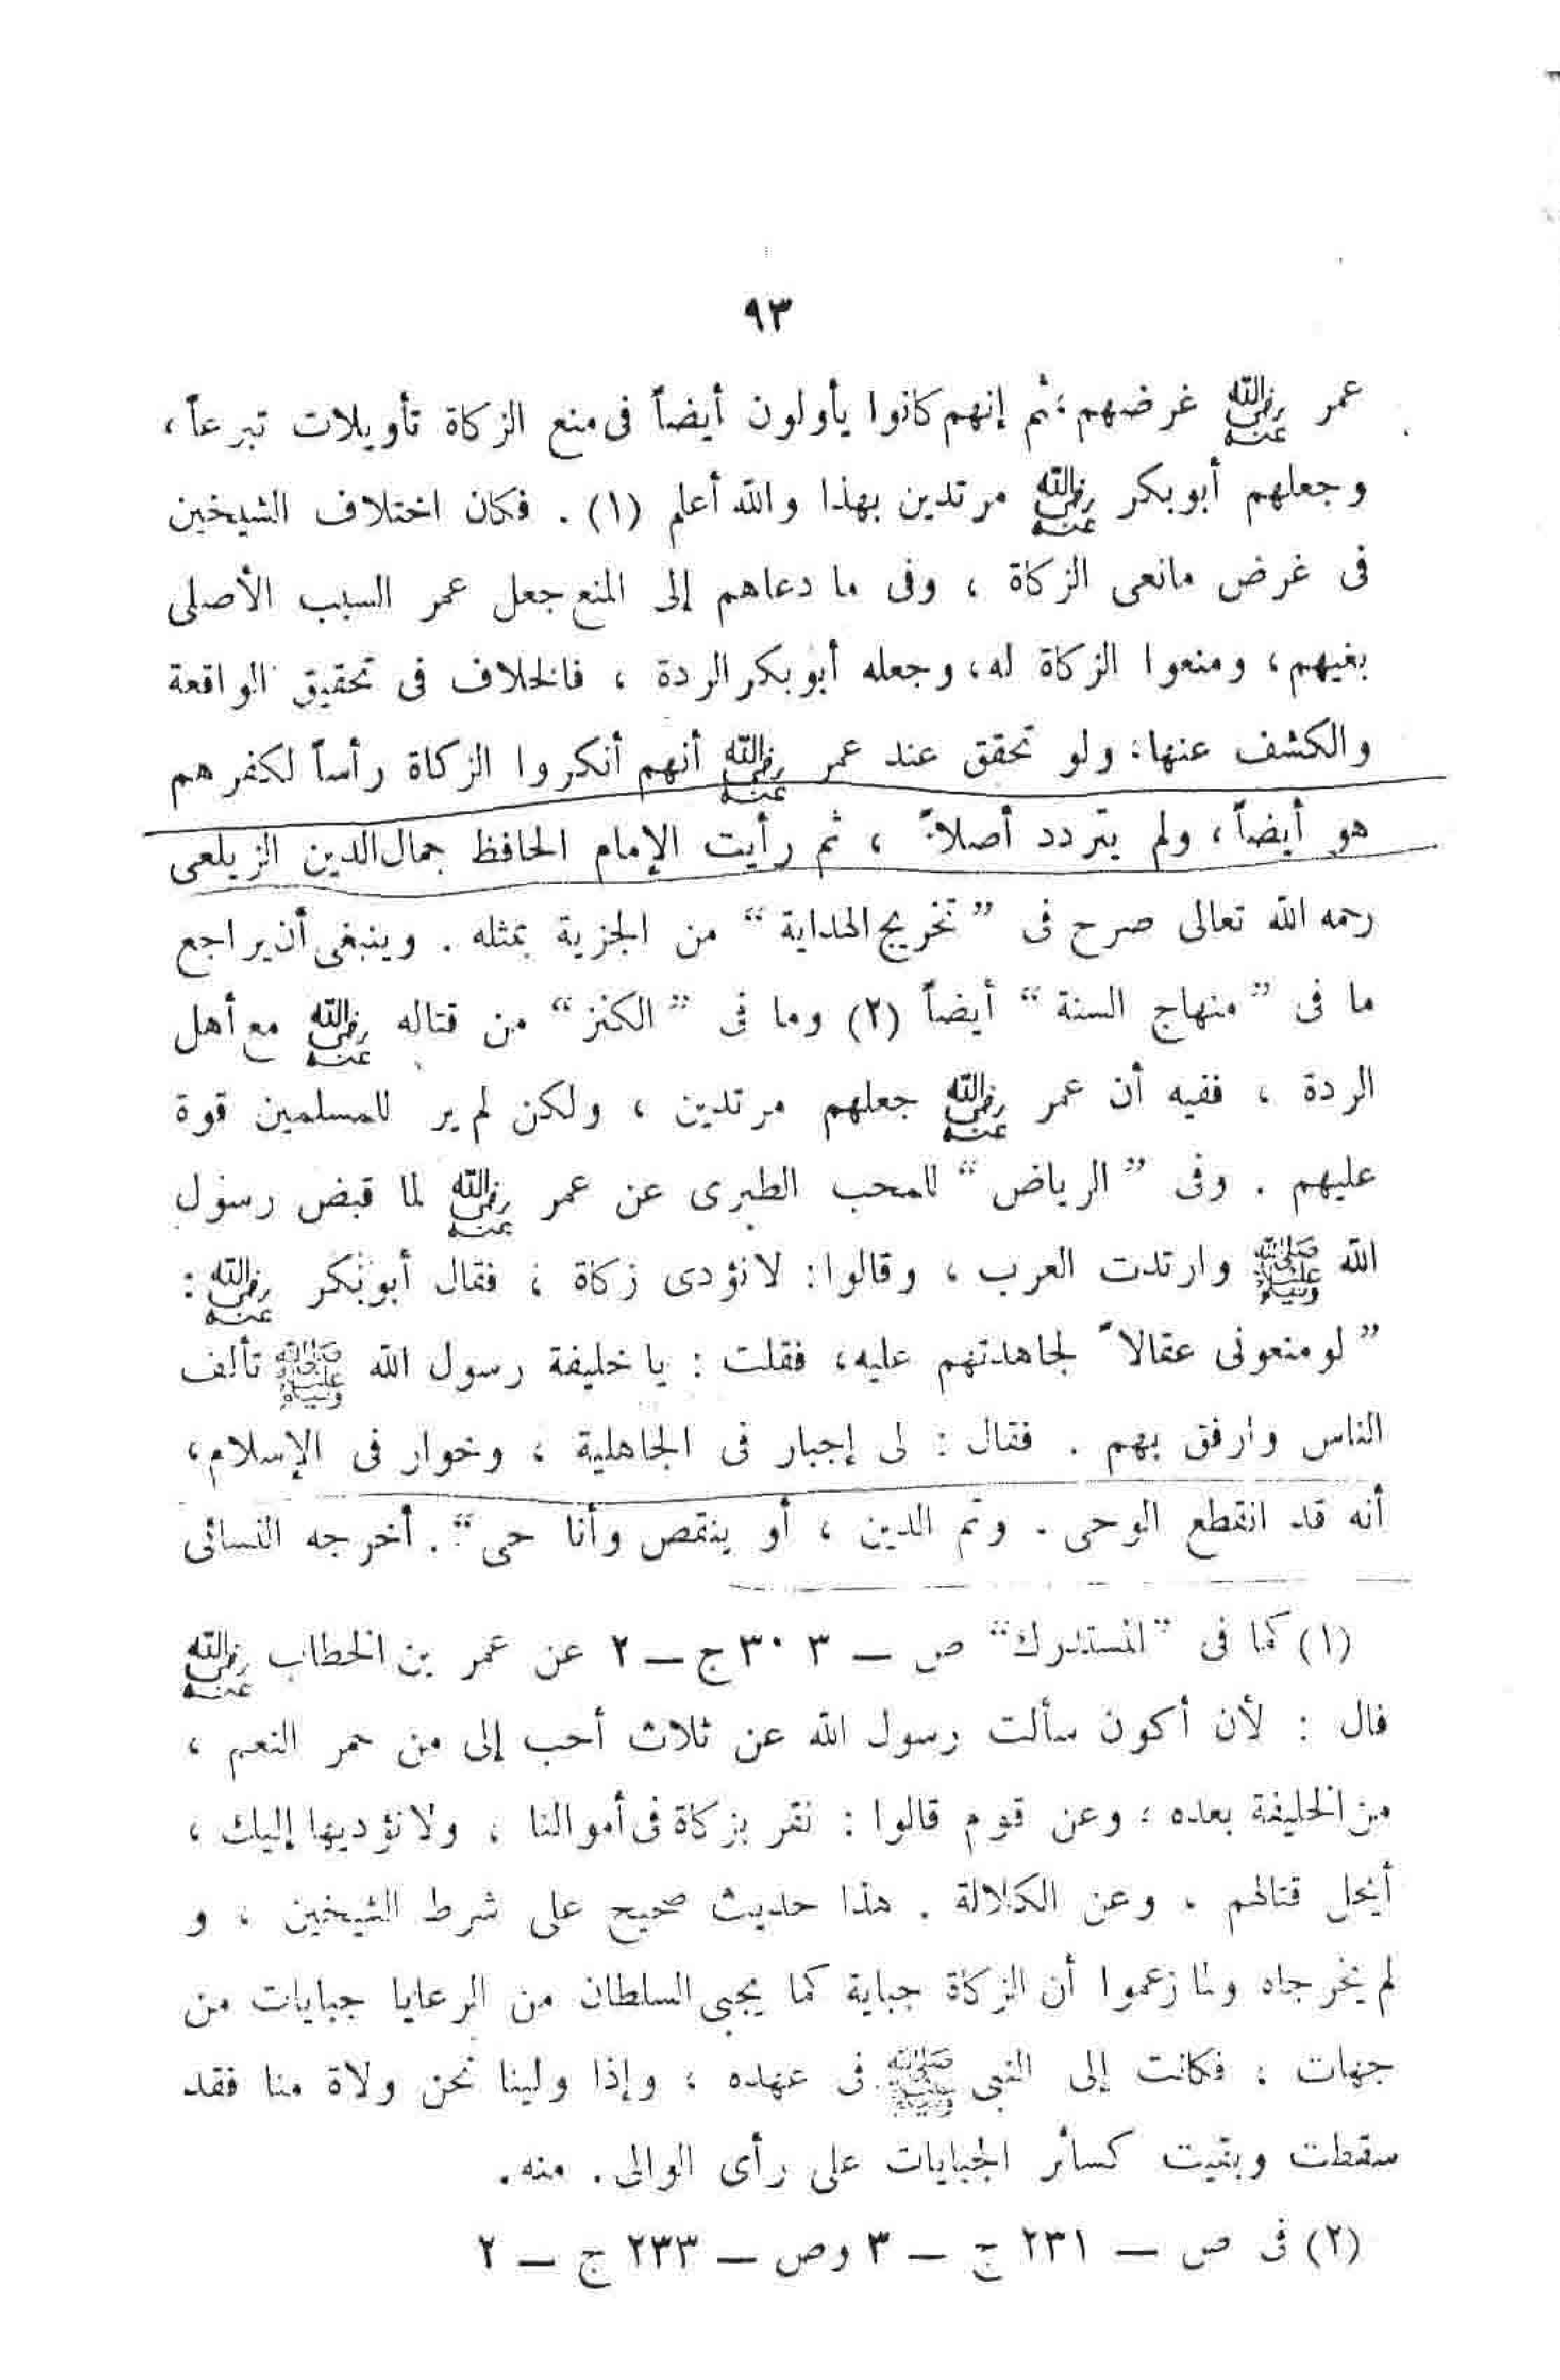 ٩٣
عمر رضي الله عنه غرضهم؛ ثم إنهم كانوا يأولون أيضاً فى منع الزكاة تأويلات تبرعاً،
وجعلهم أبوبكر رضي الله عنه مرتدين بهذا والله أعلم (١) . فكان اختلاف الشيخين
فى غرض مانعى الزكاة ، وفى ما دعاهم إلى المنع جعل عمر السبب الأصلى
بغيهم، ومنعوا الزكاة له، وجعله أبوبكر الردة ، فالخلاف فى تحقيق الواقعة
والكشف عنها، ولو تحقق عند عمر رضي الله عنه أنهم أنكروا الزكاة رأساً لكفرهم
هو أيضاً، ولم يتردد أصلاً ، ثم رأيت الإمام الحافظ جمال الدين الزيلعى
رحمه الله تعالى صرح فى ”تخريج الهداية“ من الجزية بمثله . وينبغى أن يراجع
ما فى ”منهاج السنة“ أيضاً (٢) وما فى ”الكنز“ من قتاله رضي الله عنه مع أهل
الردة ، ففيه أن عمر رضي الله عنه جعلهم مرتدين ، ولكن لم ير للمسلمين قوة
عليهم . وفى ”الرياض“ للمحب الطبرى عن عمر رضي الله عنه لما قبض رسول
الله ﷺ وارتدت العرب ، وقالوا: لا نؤدى زكاة ، فقال أبوبكر رضي الله عنه :
”لو منعونى عقالاً لجاهدتهم عليه، فقلت : يا خليفة رسول الله ﷺ تألف
الناس وارفق بهم . فقال : لى إجبار فى الجاهلية ، وخوار فى الإسلام،
أنه قد انقطع الوحى . وتم الدين ، أو ينقص وأنا حى“. أخرجه النسائى
(١) كما فى ”المستدرك“ ص — ٣٠٣ ج — ٢ عن عمر بن الخطاب رضي الله عنه
قال : لأن أكون سألت رسول الله عن ثلاث أحب إلى من حمر النعم ،
من الخليفة بعده ؛ وعن قوم قالوا : نقر بزكاة فى أموالنا ، ولا نؤديها إليك ،
أيحل قتالهم ، وعن الكلالة . هذا حديث صحيح على شرط الشيخين ، و
لم يخرجاه ولما زعموا أن الزكاة جباية كما يجبى السلطان من الرعايا جبايات من
جهات ، فكانت إلى النبى ﷺ فى عهده ، وإذا ولينا نحن ولاة منا فقد
سقطت وبقيت كسائر الجبايات على رأى الوالى . منه.
(٢) فى ص — ٢٣١ ج — ٣ وص — ٢٣٣ ج — ٢